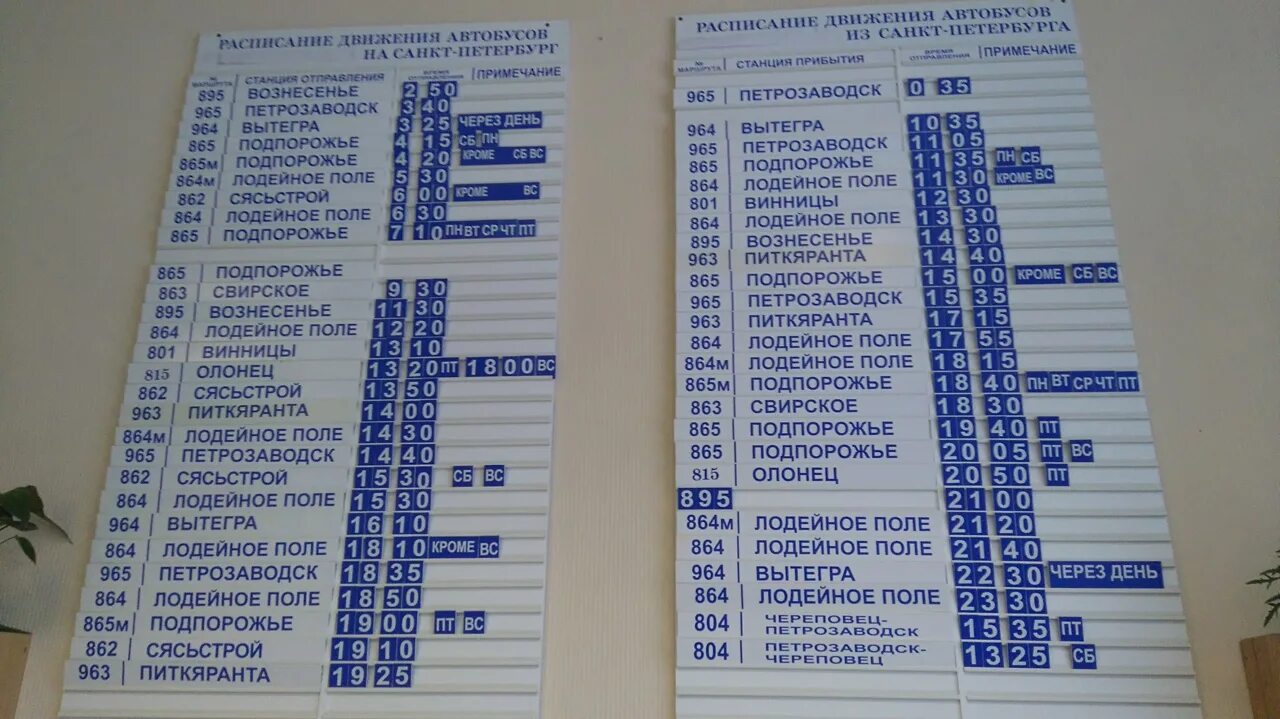 РАСПИСАНИЕ ДВИЖЕНИЯ АВТОБУСОВ
НА САНКТ-ПЕТЕРБУРГ
№ МАРШРУТА СТАНЦИЯ ОТПРАВЛЕНИЯ ВРЕМЯ ОТПРАВЛЕНИЯ ПРИМЕЧАНИЕ
895 ВОЗНЕСЕНЬЕ 2 50
965 ПЕТРОЗАВОДСК 3 40
964 ВЫТЕГРА 3 25 ЧЕРЕЗ ДЕНЬ
865 ПОДПОРОЖЬЕ 4 15 СБ ПН
865м ПОДПОРОЖЬЕ 4 20 КРОМЕ СБ ВС
864м ЛОДЕЙНОЕ ПОЛЕ 5 30
862 СЯСЬСТРОЙ 6 00 КРОМЕ ВС
864 ЛОДЕЙНОЕ ПОЛЕ 6 30
865 ПОДПОРОЖЬЕ 7 10 ПН ВТ СР ЧТ ПТ
865 ПОДПОРОЖЬЕ
863 СВИРСКОЕ 9 30
895 ВОЗНЕСЕНЬЕ 11 30
864 ЛОДЕЙНОЕ ПОЛЕ 12 20
801 ВИННИЦЫ 13 10
815 ОЛОНЕЦ 13 20 ПТ 18 00 ВС
862 СЯСЬСТРОЙ 13 50
963 ПИТКЯРАНТА 14 00
864м ЛОДЕЙНОЕ ПОЛЕ 14 30
965 ПЕТРОЗАВОДСК 14 40
862 СЯСЬСТРОЙ 15 30 СБ ВС
864 ЛОДЕЙНОЕ ПОЛЕ 15 30
964 ВЫТЕГРА 16 10
864 ЛОДЕЙНОЕ ПОЛЕ 18 10 КРОМЕ ВС
965 ПЕТРОЗАВОДСК 18 35
864 ЛОДЕЙНОЕ ПОЛЕ 18 50
865м ПОДПОРОЖЬЕ 19 00 ПТ ВС
862 СЯСЬСТРОЙ 19 10
963 ПИТКЯРАНТА 19 25
РАСПИСАНИЕ ДВИЖЕНИЯ АВТОБУСОВ
ИЗ САНКТ-ПЕТЕРБУРГА
№ МАРШРУТА СТАНЦИЯ ПРИБЫТИЯ ВРЕМЯ ОТПРАВЛЕНИЯ ПРИМЕЧАНИЕ
965 ПЕТРОЗАВОДСК 0 35
964 ВЫТЕГРА 10 35
965 ПЕТРОЗАВОДСК 11 05
865 ПОДПОРОЖЬЕ 11 35 ПН СБ
864 ЛОДЕЙНОЕ ПОЛЕ 11 30 КРОМЕ ВС
801 ВИННИЦЫ 12 30
864 ЛОДЕЙНОЕ ПОЛЕ 13 30
895 ВОЗНЕСЕНЬЕ 14 30
963 ПИТКЯРАНТА 14 40
865 ПОДПОРОЖЬЕ 15 00 КРОМЕ СБ ВС
965 ПЕТРОЗАВОДСК 15 35
963 ПИТКЯРАНТА 17 15
864 ЛОДЕЙНОЕ ПОЛЕ 17 55
864м ЛОДЕЙНОЕ ПОЛЕ 18 15
865м ПОДПОРОЖЬЕ 18 40 ПН ВТ СР ЧТ ПТ
863 СВИРСКОЕ 18 30
865 ПОДПОРОЖЬЕ 19 40 ПТ
865 ПОДПОРОЖЬЕ 20 05 ПТ ВС
815 ОЛОНЕЦ 20 50 ПТ
895 21 00
864м ЛОДЕЙНОЕ ПОЛЕ 21 20
864 ЛОДЕЙНОЕ ПОЛЕ 21 40
964 ВЫТЕГРА 22 30 ЧЕРЕЗ ДЕНЬ
864 ЛОДЕЙНОЕ ПОЛЕ 23 30
804 ЧЕРЕПОВЕЦ-ПЕТРОЗАВОДСК 15 35 ПТ
804 ПЕТРОЗАВОДСК-ЧЕРЕПОВЕЦ 13 25 СБ